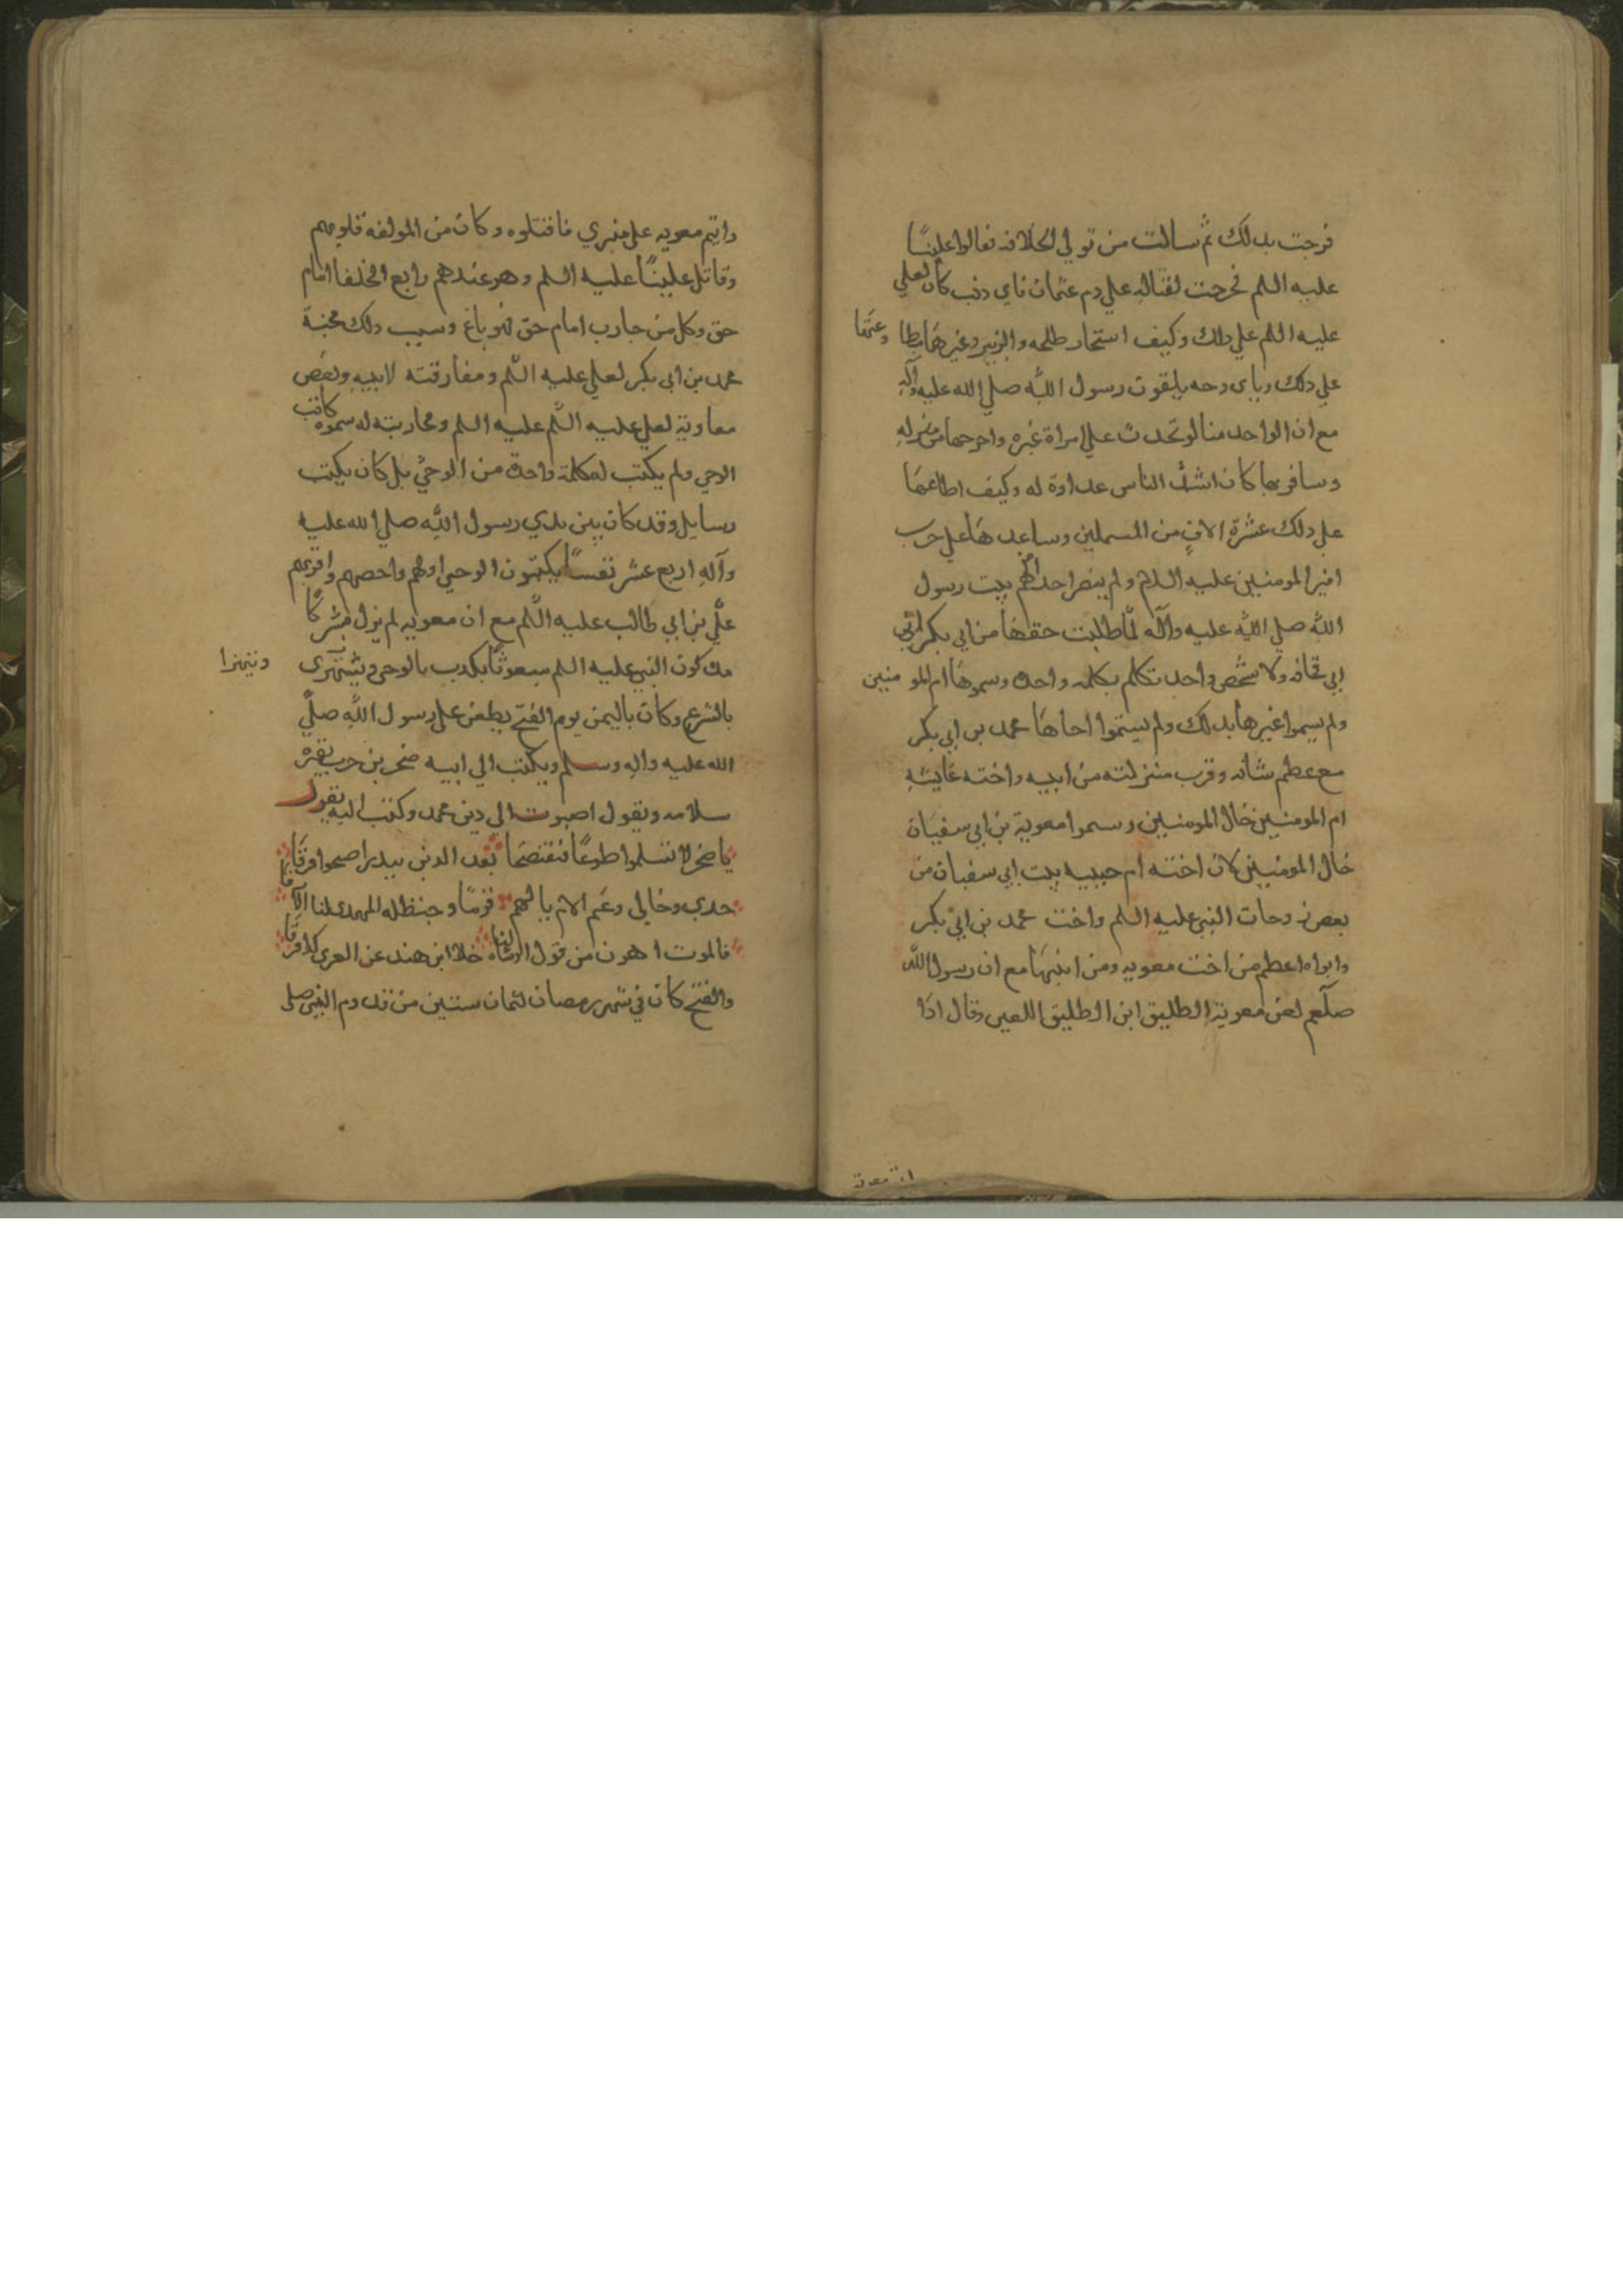 فرحت بذلك ثم سالت من تولي الخلافه فقالوا عليًا
عليه السلم فخرجت لقتاله علي دم عثمان فاي ذنب كان لعلي
عليه السلم علي ذلك وكيف استجاز طلحه والزبير وغيرهما مطا وعتها
علي ذلك وباي وجه يلقون رسول الله صلي الله عليه وآله
مع ان الواحد منا لو تحدث علي امراة غيره واخرجها من منزله
وسافر بها كان اشد الناس عداوة له وكيف اطاعها
علي ذلك عشرة الاف من المسملين وساعدها علي حرب
امير المومنين عليه السلام ولم ينصر احد منهم بنت رسول
الله صلي الله عليه وآله لما طلبت حقها من ابي بكر
ابي قحافه ولا شخص واحد تكلم بكلمه واحده وسموها ام المو منين
ولم يسموا غيرها بذلك ولم يسموا اخاها محمد بن ابي بكر
مع عظم شانه وقرب منزلته من ابيه واخته عايشه
ام المومنين خال المومنين وسموا معوية بن ابي سفيان
خال المومنين لان اخته ام حبيبه بنت ابي سفيان من
بعض زوجات النبي عليه السلم واخت محمد بن ابي بكر
وابوها اعظم من اخت معويه ومن ابيها مع ان رسول الله
صلعم لعن معوية الطليق ابن الطليق اللعين وقال اذا
رايتم معويه علي منبري فاقتلوه وكان من المولفه قلوبهم
وقاتل عليًا عليه السلم وهو عندهم رابع الخلفا امام
حق وكل من حارب امام حق فهو باغ وسبب ذلك محبة
محمد بن ابي بكر لعلي عليه السلم ومفارقته لابيه وبغض
معاوية لعلي عليه السلم عليه السلم ومحاربته له سموه كاتب
الوحي ولم يكتب له كلمة واحدة من الوحي بل كان يكتب
رسايل وقد كان بين يدي رسول الله صلي الله عليه
وآله اربع عشر نفسًا يكتبون الوحي اولهم واخصهم واقربهم
علي بن ابي طالب عليه السلم مع ان معويه لم يزل مشركًا
مدة كون النبي عليه السلم مبعوثًا يكذب بالوحي ويستهزى
بالشرع وكان باليمن يوم الفتح يطعن على رسول الله صلي
الله عليه واله وسلم ويكتب الي ابيه صخر بن حرب يعيره
سلامه ويقول اصبوت الى دين محمد وكتب اليه يقول
يا صخر لا تسلموا طوعًا فتفضحنا بعد الدين ببدر اصبحوا فرقا
جدي وخالي وعم الام يا لهم قومًا وحنظله المهدى لنا الارقا
فالموت اهون من قول الوشاه لنا خلا ابن هند عن العزى كذا فرقا
والفتح كان في شهر رمضان لثمان سنين من قدوم النبي صلى